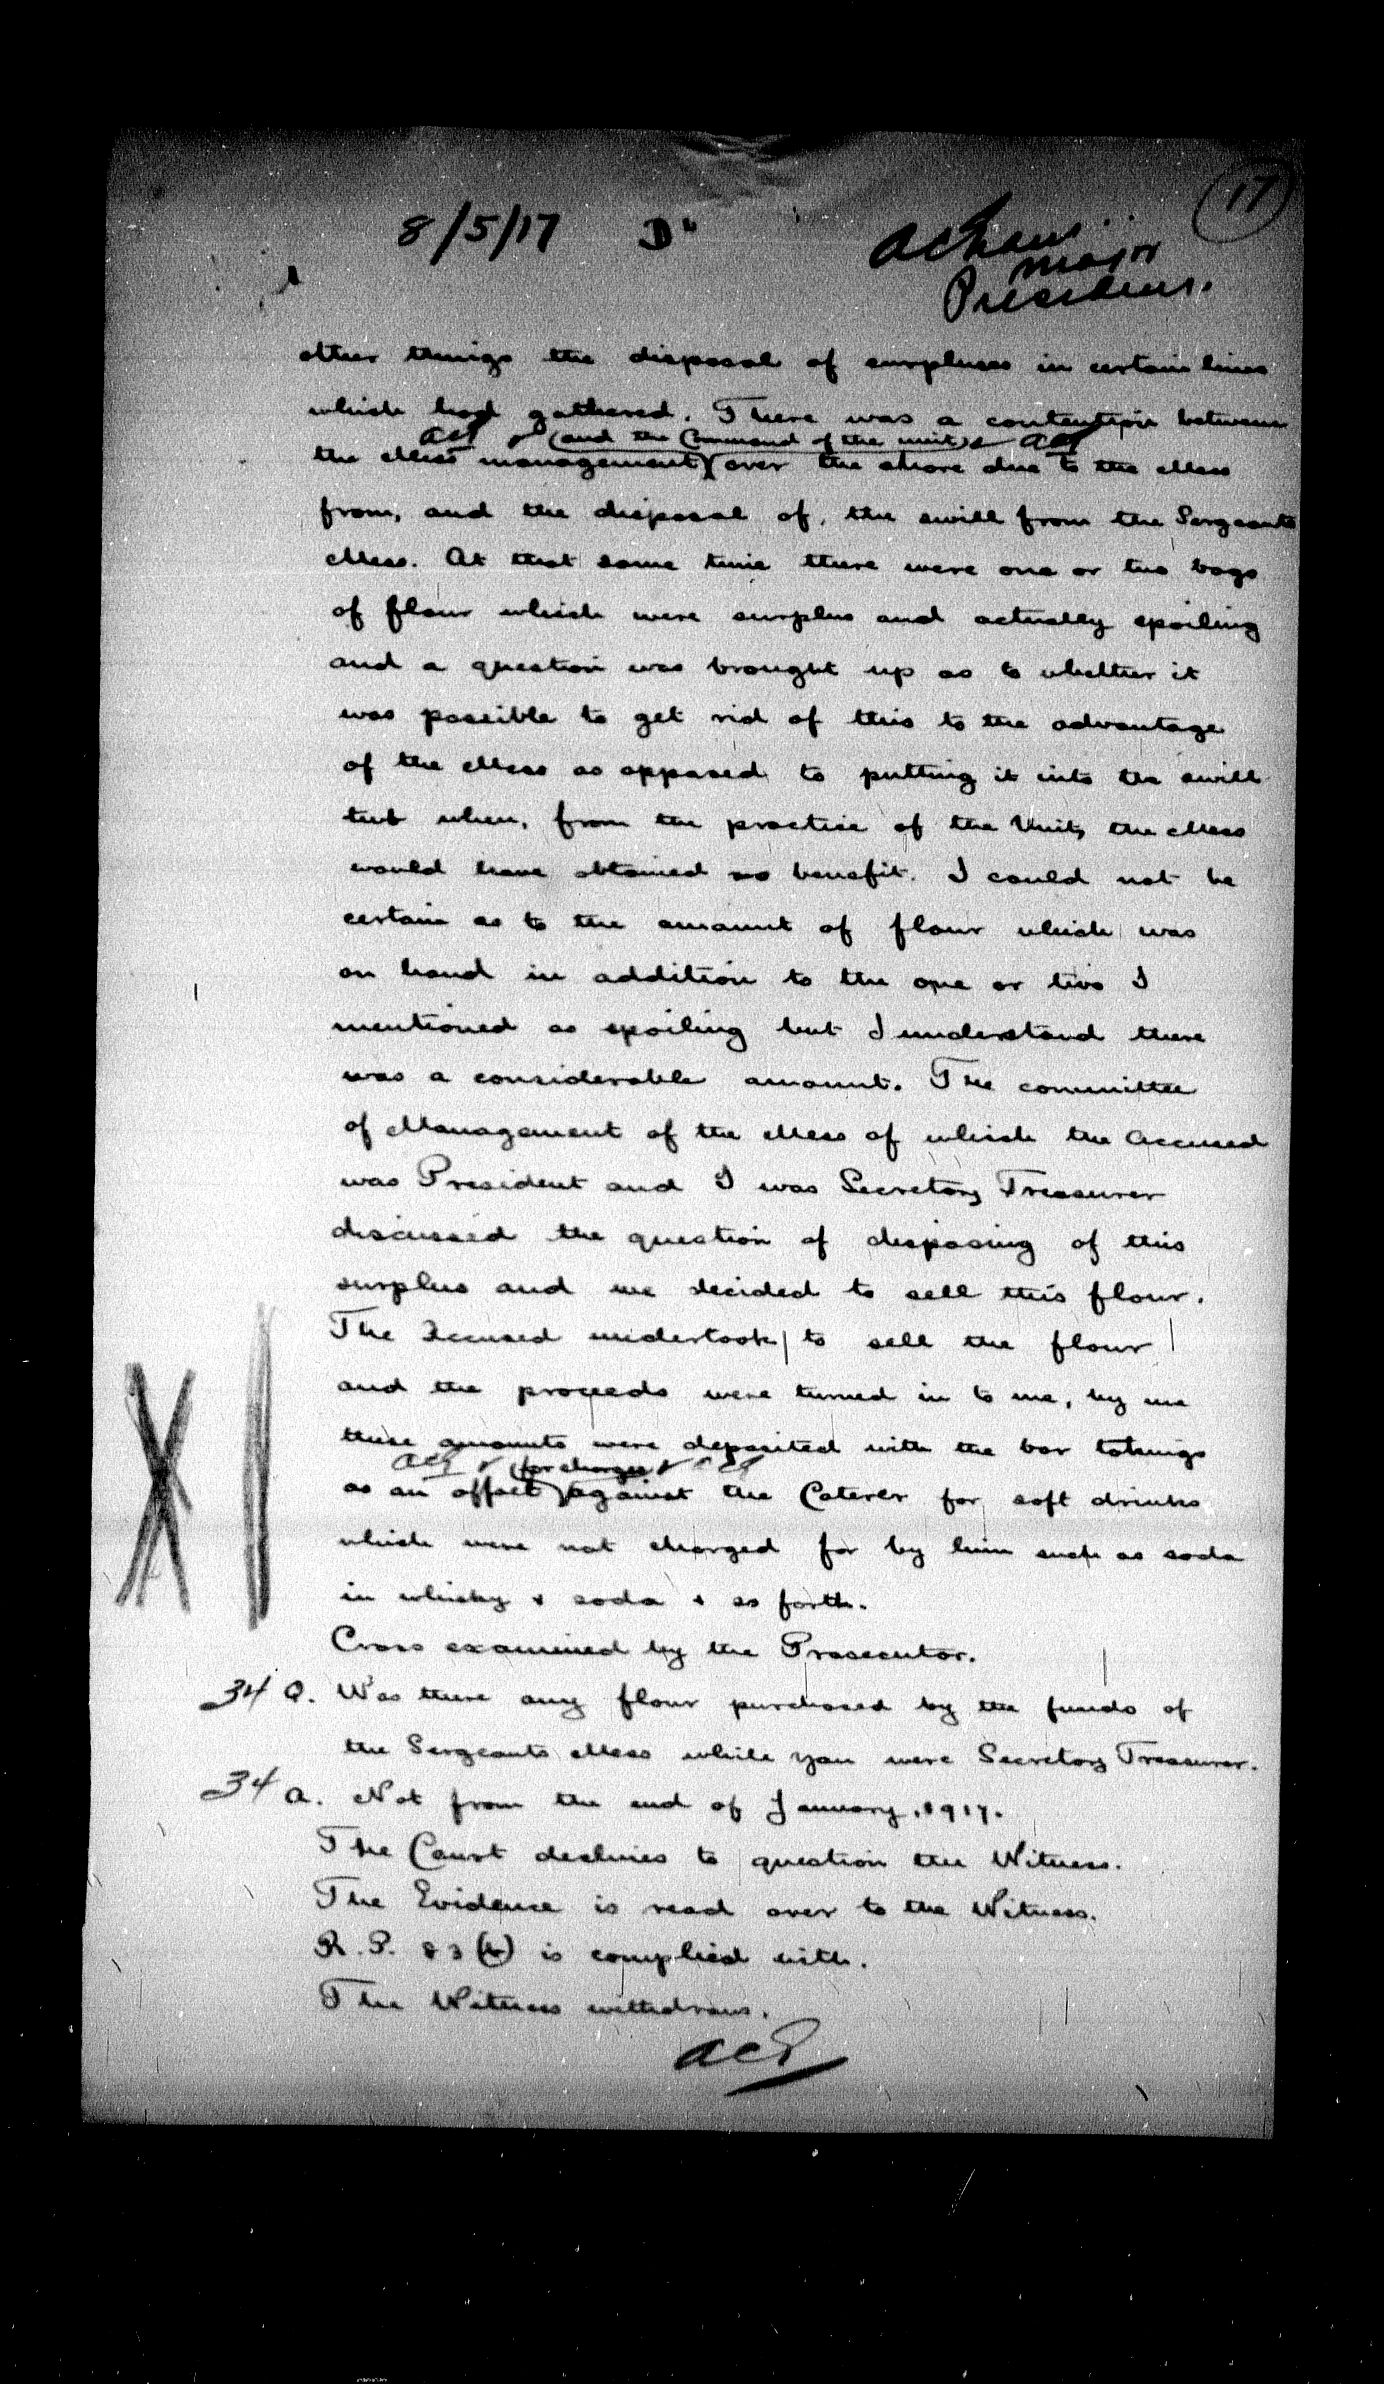 17
8/5/17 D"
Major
President.
other things the disposal of surpluses in certain lines
which had gathered. There was a contention between
ACE (and the Command of the unit) ACE
the Mess management over the share due to the Mess
from, and the disposal of, the swill from the Sergeants
Mess. At that same time there were one or two bags
of flour which were surplus and actually spoiling
and a question was brought up as to whether it
was possible to get rid of this to the advantage
of the Mess as opposed to putting it into the swill
tub when, from the practice of the Unit, the Mess
would have obtained no benefit. I could not be
certain as to the amount of flour which was
on hand in addition to the one or two I
mentioned as spoiling but I understand there
was a considerable amount. The committee
of Management of the Mess of which the Accused
was President and I was Secretary Treasurer
discussed the question of disposing of this
surplus and we decided to sell this flour.
The Accused undertook to sell the flour
and the proceeds were turned in to me, by me
these amounts were deposited with the bar takings
ACE (for charges) ACE
as an offset against the Caterer for soft drinks
which were not charged for by him such as soda
in whisky & soda & so forth.
Cross examined by the Prosecutor.
34 Q. Was there any flour purchased by the funds of
the Sergeants Mess while you were Secretary Treasurer.
34 A. Not from the end of January, 1917.
The Court declines to question the Witness.
The Evidence is read over to the Witness.
R.P. 83 (b) is complied with.
The Witness withdraws.
ACE